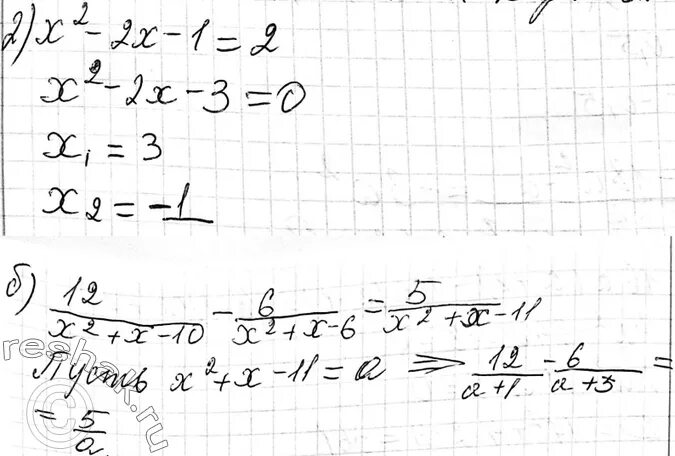 2) x² - 2x - 1 = 2
x² - 2x - 3 = 0
x₁ = 3
x₂ = -1
б) 12/(x² + x - 10) - 6/(x² + x - 6) = 5/(x² + x - 11)
Пусть x² + x - 11 = a ⇒ 12/(a + 1) - 6/(a + 5) =
= 5/a
reshak.ru